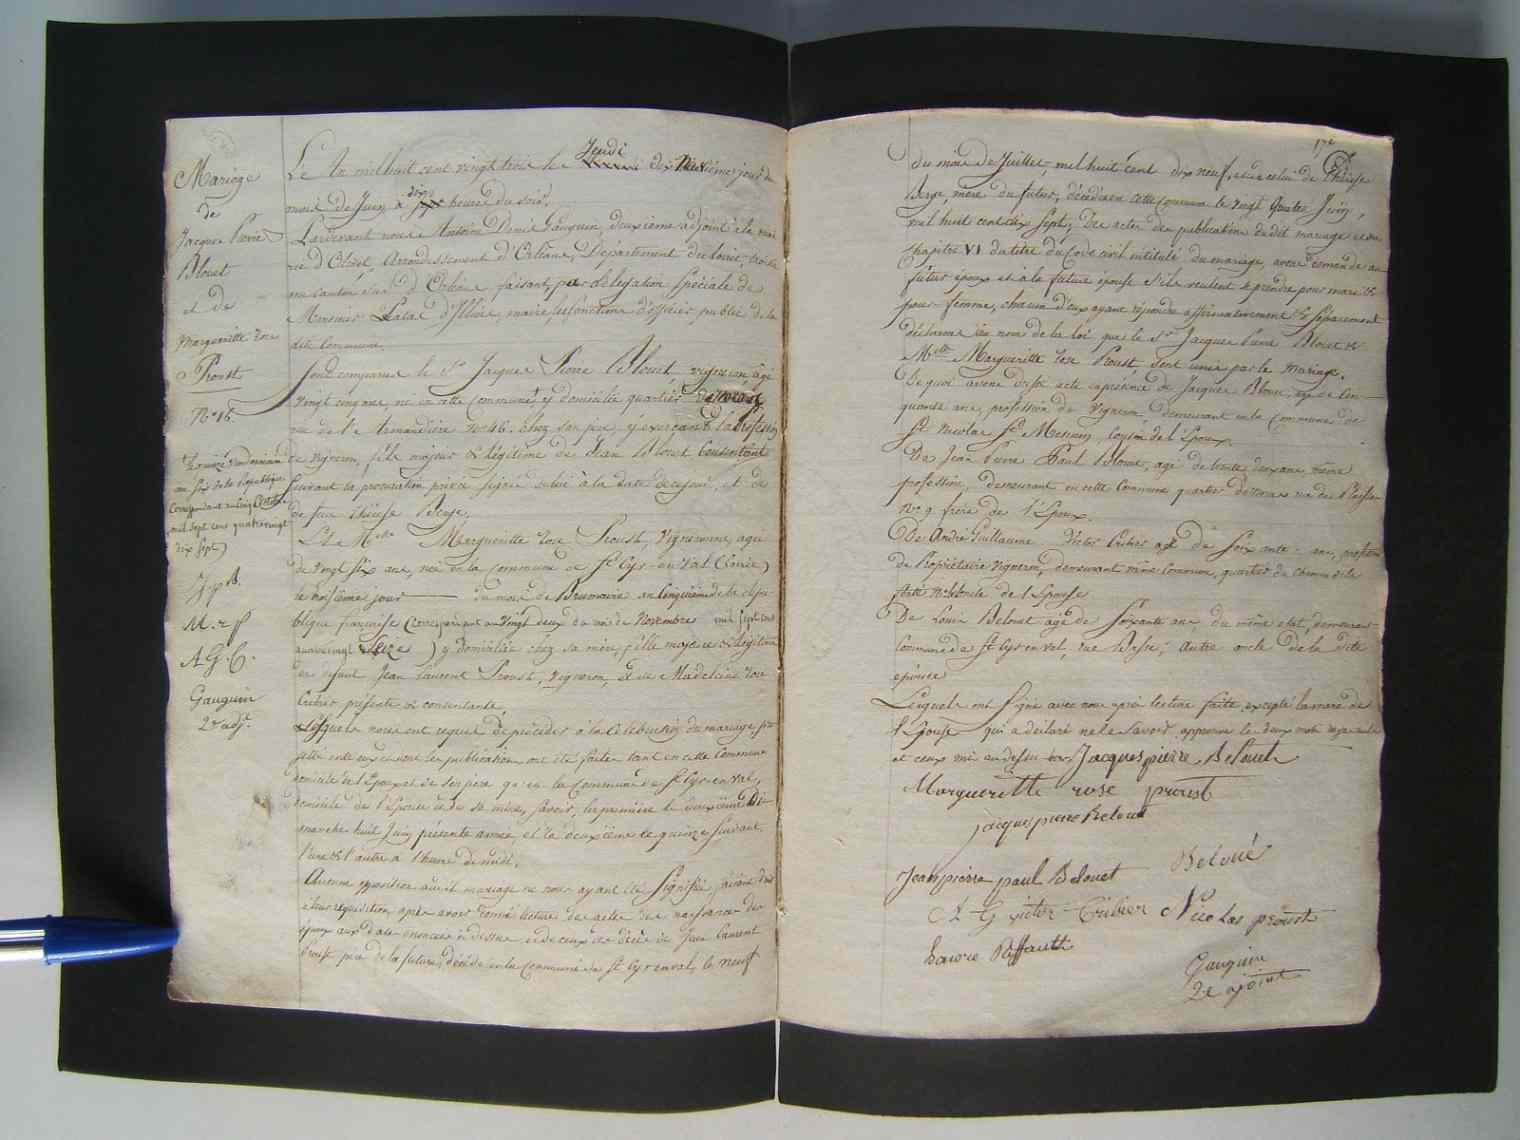 Mariage
de
Jacques Pierre
Blouet
et de
Margueritte rose
Proust
N.° 16.
an six de la République
Correspondant au vingt Octobre
mil sept cent quatrevingt
dix sept)
J p B.
M. r p
A. G. C.
Gauguin
2e adjt.
L'An mil huit cent vingt trois le Jeudi dix Neuvième jour du
mois de Juin à dix heures du soir.
Pardevant nous Antoine Denis Gauguin, deuxième adjoint à la mai
rie d'Olivet Arrondissement d'Orléans, Département du Loiret,
canton sud d'Orléans faisant, par délégation spéciale de
Monsieur d'Illiers, maire, les fonctions d'officier public de la
dite Commune.
Sont comparus le Sr Jacques Pierre Blouet vigneron, âgé
vingt cinq ans, né en cette Commune, y domicilié quartier
rue de N.° 46. chez son père, y exerçant la profession
de vigneron, fils majeur & légitime de Jean Blouet Consentant
suivant la procuration privée signée à la date de ce jour, et de
de feue Thérèse Berge.
Et Melle Marguerite rose Proust, Vigneronne, agée
de vingt six ans, née en la commune de St Cyr-en-Val (Loiret)
le jour du mois de Brumaire an Cinquième de la répu
blique française (correspondant au Vingt deux du mois de Novembre mil sept cent
quatrevingt Seize) y domiciliée chez sa mère, fille majeure & légitime
de défunt Jean Laurent Proust, vigneron, et de Madeleine rose
Cribier présente & consentante.
Lesquels nous ont requis de procéder à la Célébration du mariage pro
jetté entre eux et dont les publications ont été faites tant en cette Commune
domicile de l'Epoux et de son père qu'en la Commune de St Cyr-en-val,
domicile de l'Epouse et de sa mère, savoir, la première le Di
manche huit Juin présente année, et la deuxième le quinze suivant,
l'une & l'autre à l'heure de midi.
Aucune opposition audit mariage ne nous ayant été signifiée, faisant droit
à leur réquisition, après avoir donné lecture des actes de naissance des
époux aux dates énoncées ci dessus, et de ceux de décès de Jean Laurent
Proust père de la future, décédé en la Commune de St Cyr en val, le neuf
172
du mois de Juillet, mil huit cent dix neuf, et de celui de Thérèse
Berge, mère du futur, décédée en cette Commune le vingt quatre Juin,
mil huit cent dix sept, Des actes de publication dudit mariage et du
Chapitre VI du titre du Code civil intitulé du mariage, avons demandé au
futur époux et à la future épouse s'ils veulent se prendre pour mari &
pour femme, chacun d'eux ayant répondu affirmativement & séparément
déclarons au nom de la loi que le Sr Jacques Pierre Blouet &
Melle Marguerite rose Proust sont unis par le mariage.
De quoi avons dressé acte en présence de Jacques Blouet, agé de Cin
quante ans, profession de Vigneron demeurant en la Commune de
St Nicolas St Mesmin, cousin de l'Epoux.
De Jean Pierre Paul Blouet, agé de trente deux ans, même
profession, demeurant en cette Commune quartier rue de
N.° 9 frère de l'Epoux.
De André Guillaume Victor Cribier agé de Soixante ans, profession
de Propriétaire Vigneron, demeurant même Commune, quartier du chemin de la
oncle de l'Epouse
De Louis Belouet agé de Soixante ans, du même état, demeurant
Commune de St Cyr en val, rue Basse, Autre oncle de la dite
épouse
Lesquels ont signé avec nous après lecture faite, excepté la mère de
l'Epouse qui a déclaré ne le savoir. approuvé les deux mots
et ceux mis au dessus Jacques pierre Belouet
Margueritte rose proust
jacques pierre Belouet
Jean pierre paul Belouet Beloué
A G victor Cribier Nicolas proust
Gauguin
2e ajoint